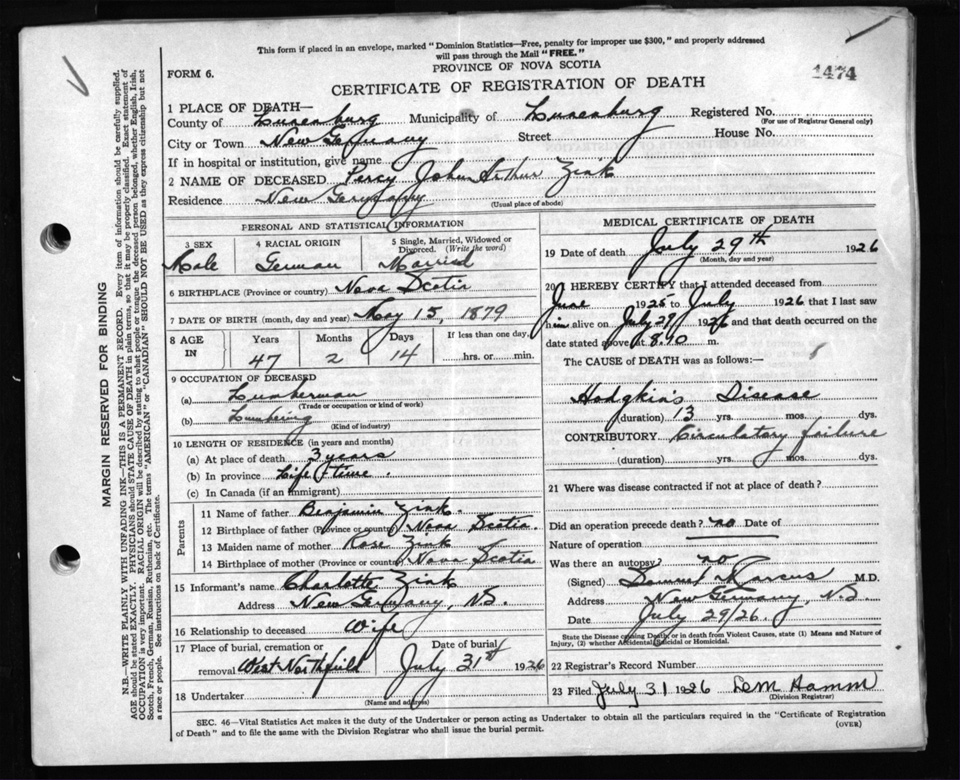 This form if placed in an envelope, marked "Dominion Statistics—Free, penalty for improper use $300," and properly addressed
will pass through the Mail "FREE."
PROVINCE OF NOVA SCOTIA
FORM 6.
1474
CERTIFICATE OF REGISTRATION OF DEATH
1 PLACE OF DEATH—
County of Lunenburg Municipality of Lunenburg Registered No.
(For use of Registrar General only)
City or Town New Germany Street House No.
If in hospital or institution, give name
2 NAME OF DECEASED Percy John Arthur Zink
Residence New Germany
(Usual place of abode)
PERSONAL AND STATISTICAL INFORMATION
3 SEX 4 RACIAL ORIGIN 5 Single, Married, Widowed or
Divorced. (Write the word)
Male German Married
6 BIRTHPLACE (Province or country) Nova Scotia
7 DATE OF BIRTH (month, day and year) May 15, 1879
8 AGE IN Years Months Days If less than one day,
47 2 14 hrs. or min.
9 OCCUPATION OF DECEASED
(a) Lumberman
(Trade or occupation or kind of work)
(b) Lumbering
(Kind of industry)
10 LENGTH OF RESIDENCE (in years and months)
(a) At place of death 3 years
(b) In province Life time
(c) In Canada (if an immigrant)
Parents
11 Name of father Benjamin Zink
12 Birthplace of father (Province or country) Nova Scotia.
13 Maiden name of mother Rose Zink
14 Birthplace of mother (Province or country) Nova Scotia
15 Informant's name Charlotte Zink
Address New Germany, N.S.
16 Relationship to deceased Wife
17 Place of burial, cremation or Date of burial
removal West Northfield July 31st 1926
18 Undertaker
(Name and address)
MEDICAL CERTIFICATE OF DEATH
19 Date of death July 29th 1926
(Month, day and year)
20 I HEREBY CERTIFY that I attended deceased from
June 1925 to July 1926 that I last saw
him alive on July 29 1926 and that death occurred on the
date stated above at 8.40 m.
The CAUSE of DEATH was as follows:—
Hodgkin's Disease
(duration) 13 yrs. mos. dys.
CONTRIBUTORY Circulatory failure
(duration) yrs. mos. dys.
21 Where was disease contracted if not at place of death?
Did an operation precede death? no Date of
Nature of operation
Was there an autopsy? no
(Signed) Samuel Marcus M.D.
Address New Germany, N.S.
Date July 29/26.
State the Disease causing Death, or in death from Violent Causes, state (1) Means and Nature of
Injury, (2) whether Accidental, Suicidal or Homicidal.
22 Registrar's Record Number
23 Filed July 31 1926 Hamm
(Division Registrar)
SEC. 46—Vital Statistics Act makes it the duty of the Undertaker or person acting as Undertaker to obtain all the particulars required in the "Certificate of Registration
of Death" and to file the same with the Division Registrar who shall issue the burial permit.
(OVER)
MARGIN RESERVED FOR BINDING
N.B.—WRITE PLAINLY WITH UNFADING INK—THIS IS A PERMANENT RECORD. Every item of information should be carefully supplied.
AGE should be stated EXACTLY. PHYSICIANS should STATE CAUSE OF DEATH in plain terms, so that it may be properly classified. Exact statement of
OCCUPATION is very important. RACIAL ORIGIN will be described by stating to what people or tongue the deceased person belonged, whether English, Irish,
Scotch, French, German, Russian, Ruthenian, etc. The terms "AMERICAN" or "CANADIAN" SHOULD NOT BE USED as they express citizenship but not
a race or people. See instructions on back of Certificate.